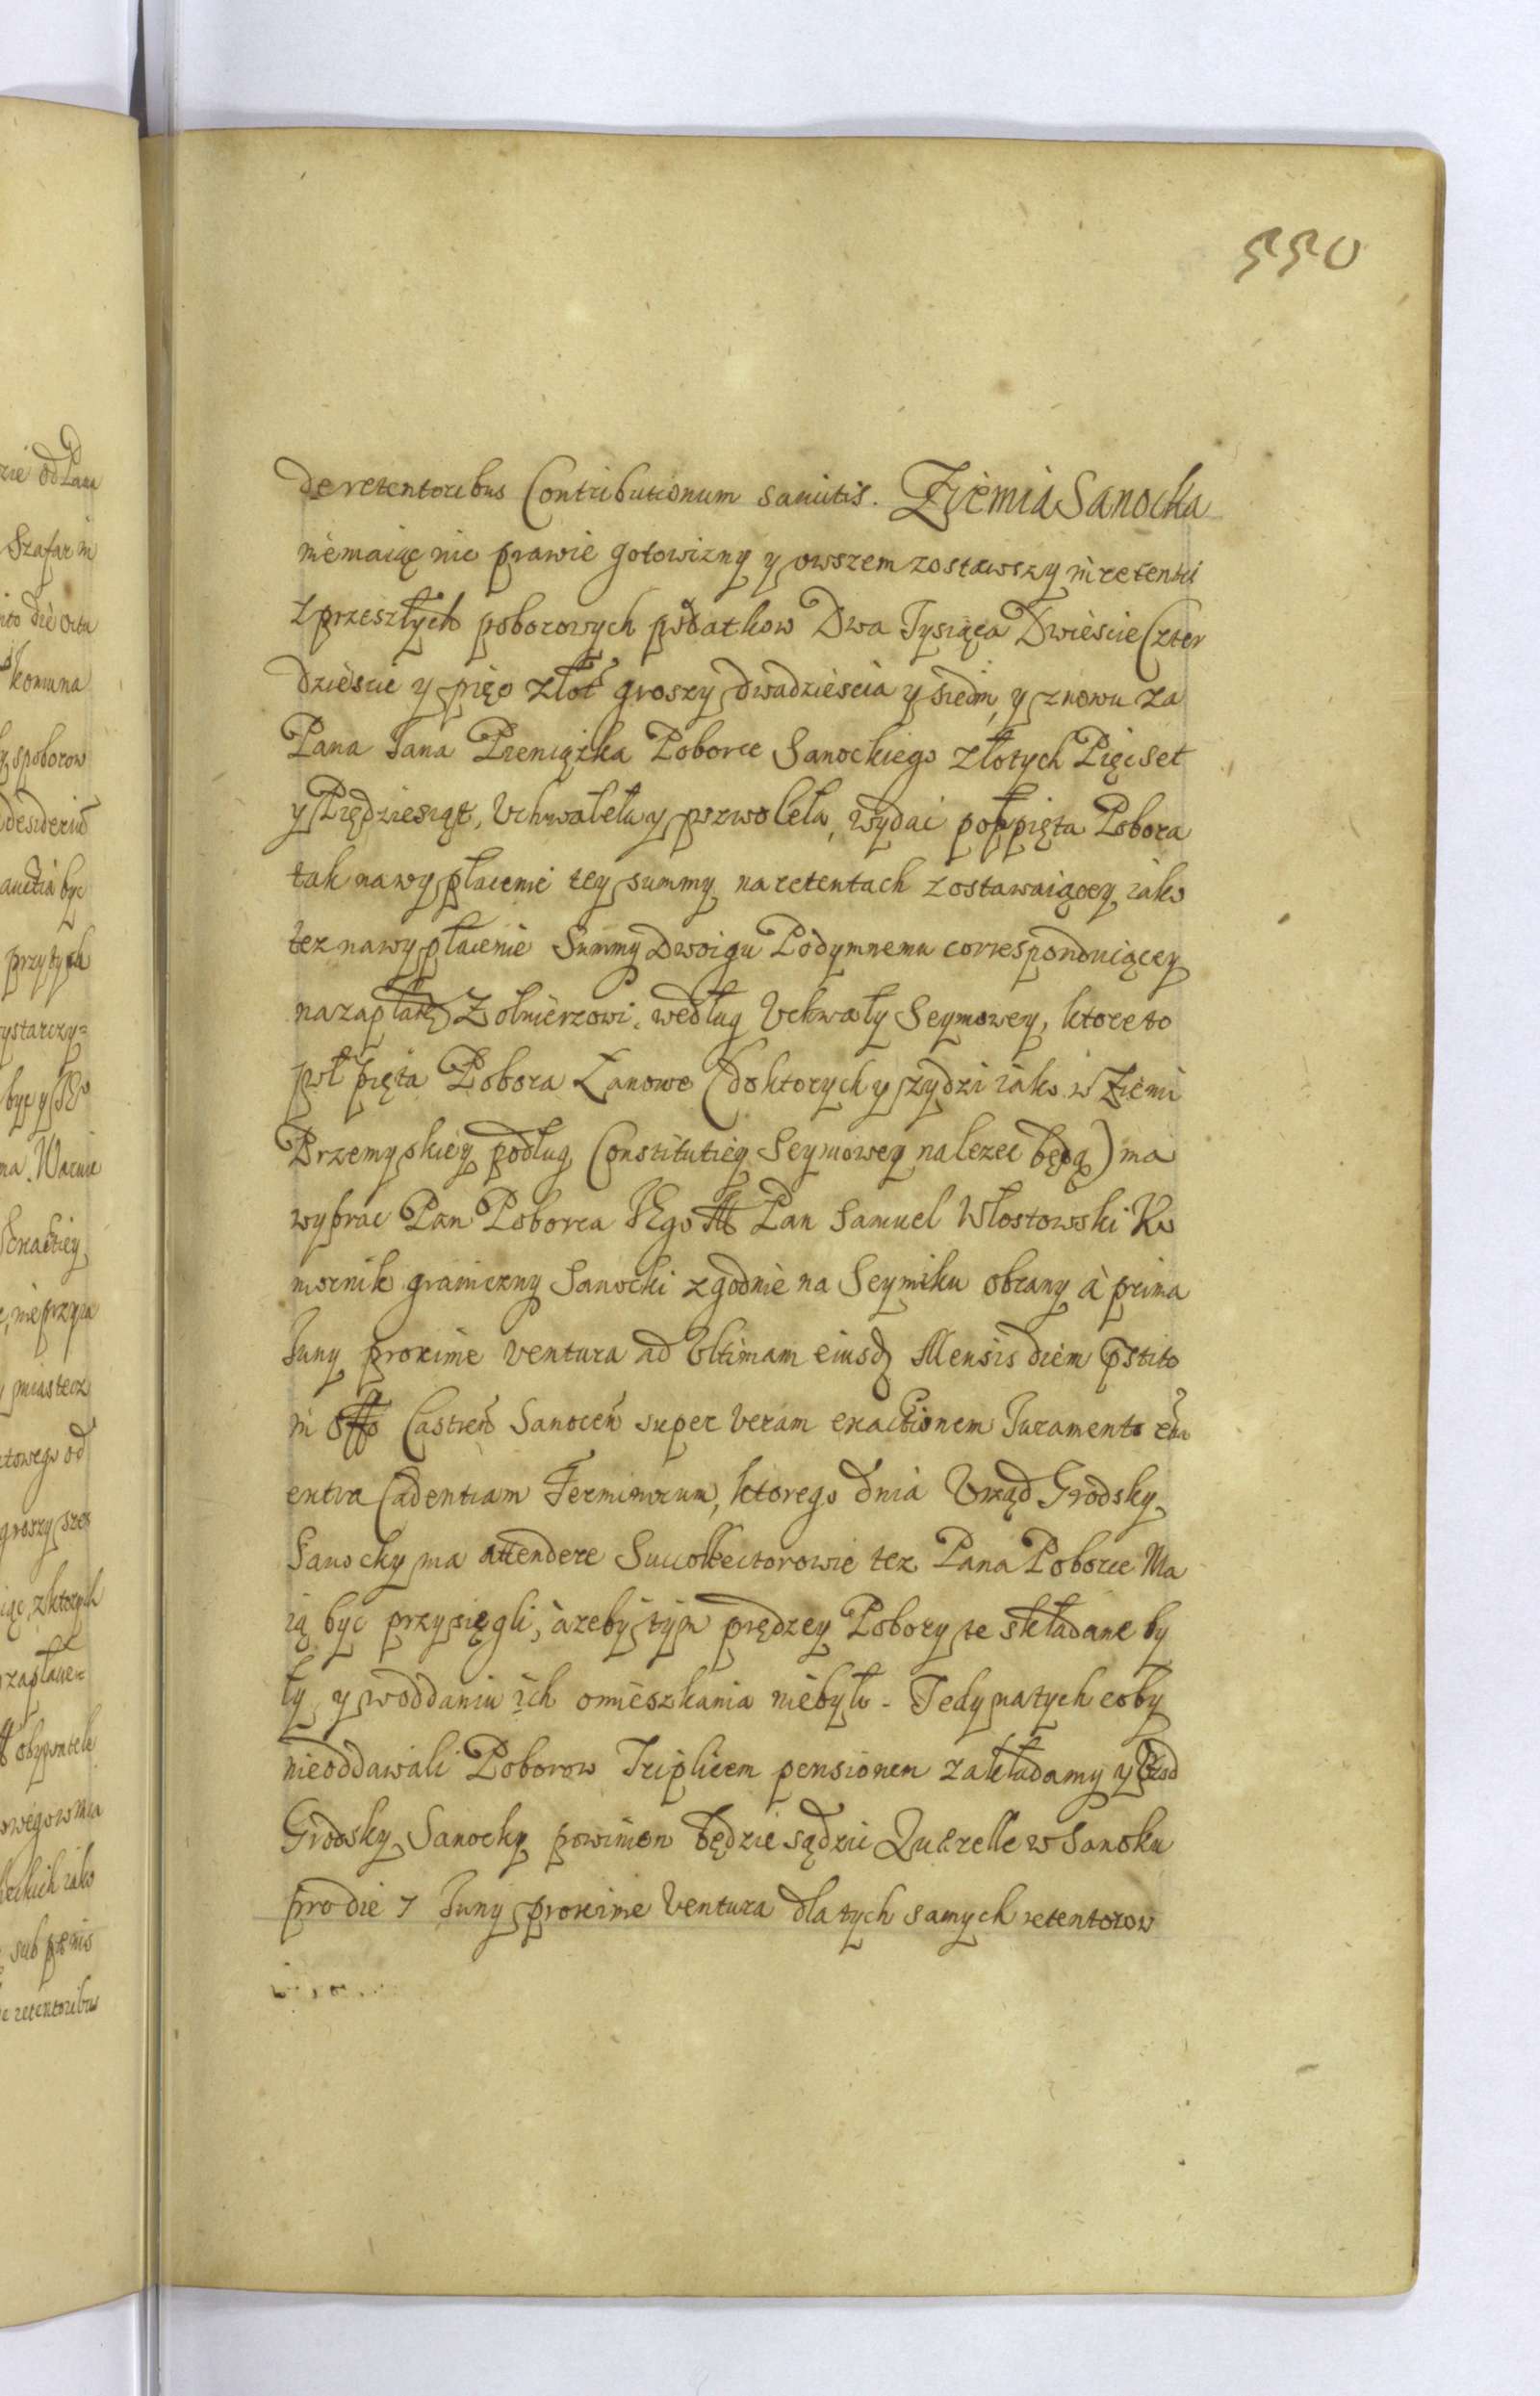 550
de retentoribus Contributionum sancitis. Ziemia Sanocka
niemaiąc nic prawie gotowizny y owszem zostawszy in retenti
z przeszłych poborowych podatkow Dwa Tysiąca Dwieście Czter
dzieście y pięc złot groszy dwadzieścia y siedm, y znowu za
Pana Jana Pieniążka Poborce Sanockiego złotych Pięcset
y Pięдziesiąt, Uchwaleła y pozwoleła, wydać połpięta Pobora
tak na wypłacenie tey summy na retentach zostawaiącey iako
tez na wypłacenie Summy Dwoigu Podymnemu corresponduiącey
na zapłatę Zołnierzowi, według Uchwały Seymowey, ktore to
poł pięta Pobora Łanowe (do ktorych y szydzi iako w Ziemi
Przemyskiey podług Constitutiey Seymowey nalezec będą) ma
wybrac Pan Poborca IEgo M Pan Samuel Włostowski Ko
mornik graniczny Sanocki zgodnie na Seymiku obrany à prima
Juny proxime ventura ad Ultimam eiusd Mensis diem pstito
in Offo Castreń Sanoceń super veram exactionem Juramento
extra Cadentiam Terminorum, ktorego dnia Urząd Grodsky
Sanocky ma attendere Succollectorowie tez Pana Poborce Ma
ią byc przysięgli, àzeby tym prędzey Pobory te składane by
ły y w oddaniu ich omieszkania niebyło - Tedy na tych coby
nieoddawali Poborow Triplicem pensionem zakładamy y Urząd
Grodsky Sanocky powinien będzie sądzić Querelle w Sanoku
pro die 7 Juny proxime Ventura dla tych samych retentorow
zie od Pana
Szafar in
komuna
z poborow
desideriū
przy tych
wystarczy=
byc y
Exactiey
y miastecz
towego od
groszy szes
iąc, z ktorych
zapłace=
obywatele
iako
sub pœnis
de retentoribus